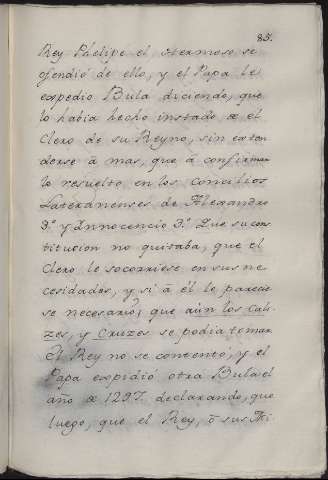 85.
Rey Phelipe el Hermoso se
ofendió de ello, y el Papa le
expedio Bula diciendo, que
lo havia hecho instado de el
Clero de su Reyno, sin exten
derse à mas, que à confirmar
lo resuelto en los Concilios
Lateranenses de Alexandro
3.º y Innocencio 3.º Que su cons
titucion no quitaba, que el
Clero le socorriese en sus ne
cesidades, y si à èl le parecie
se necesario, que aún los Cali
zes, y Cruzes se podia tomar
El Rey no se contentó, y el
Papa expidió otra Bula el
año de 1297. declarando, que
luego, que el Rey, ò sus Mi